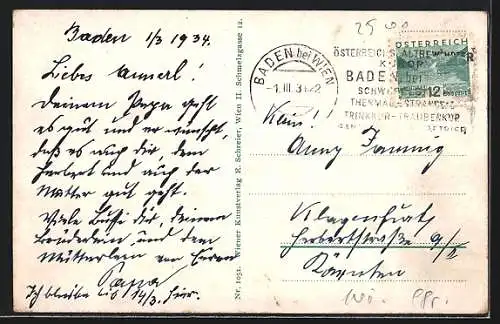 Baden 1/3 1934.
Liebes Annerl!
Deinem Papa geht
es gut und er wünscht,
daß es auch dir, dem
Herbert und auch der
Mutter gut geht.
Viele Bussi dir, deinem
Brüderlein und dem
Mütterlein von Eurem
Papa
Ich bleibe bis 14/3. hier.
Nr. 1051. Wiener Kunstverlag E. Schreier, Wien II. Schmelzgasse 12.
25
BADEN bei WIEN
-1.III.3
ÖSTERREICHS
BADEN bei
SCHWEFEL
THERMAL-STRANDBAD
TRINKKUR-TRAUBENKUR
ÖSTERREICH
12
Anny
Klagenfurt
Herbertstraße 9/II
Kärnten